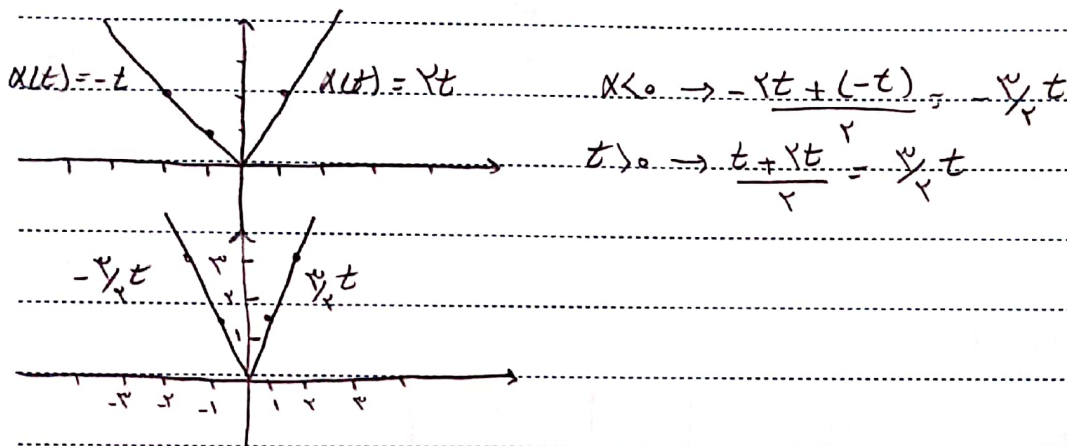 x(t) = -t
x(t) = ۲t
x<۰ → -۲t + (-t) / ۲ = -۳/۲ t
t>۰ → t + ۲t / ۲ = ۳/۲ t
-۳/۲ t
۳/۲ t
۳
۲
۱
-۳ -۲ -۱ ۱ ۲ ۳